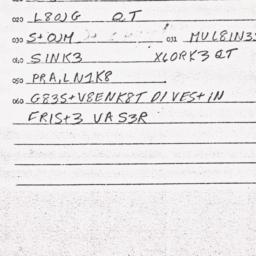 020 L80JG QT
030 S+OJM 031 MUL8IN3S
040 SINK3 XLORK3 QT
050 PRA,LN1K8
060 G83S+V8ENK8T DIVES+IN
FRIST3 VAS3R